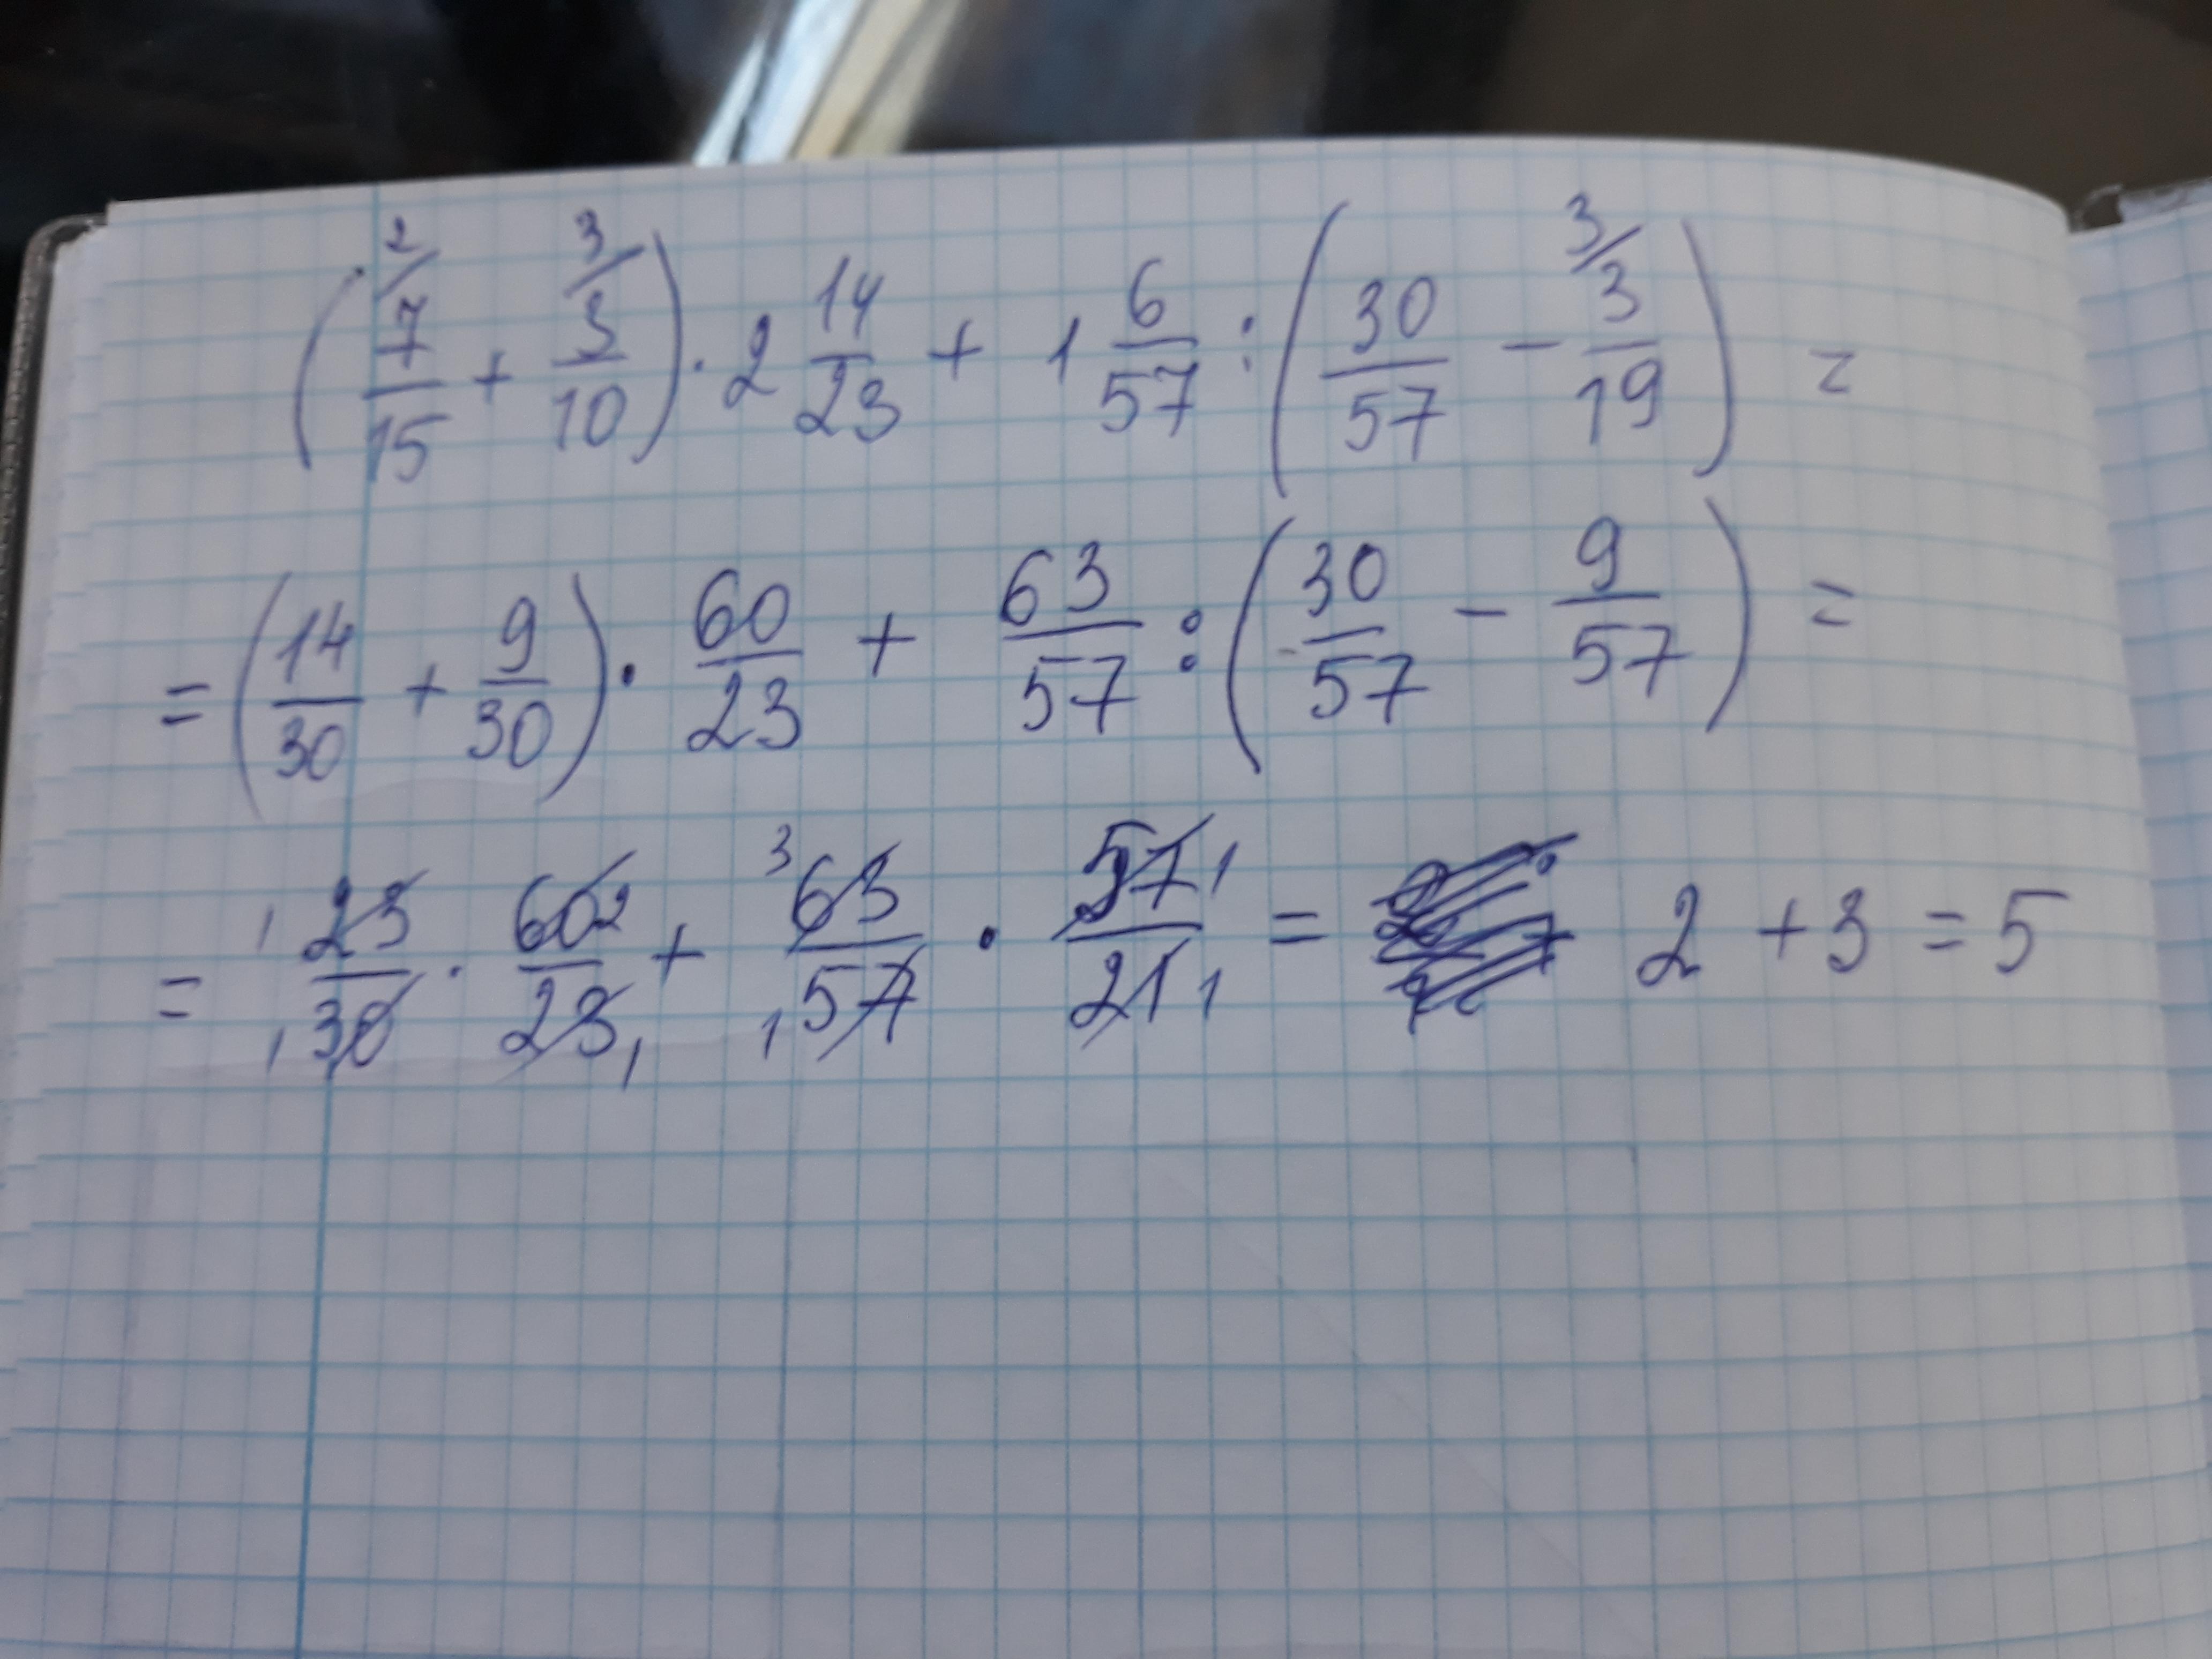 (2/ 7/15 + 3/ 3/10) · 2 14/23 + 1 6/57 : (30/57 - 3/ 3/19) =
= (14/30 + 9/30) · 60/23 + 63/57 : (30/57 - 9/57) =
= 1 23/1 30 · 60 2/23 1 + 3 63/1 57 · 57 1/21 1 = 2 + 3 = 5